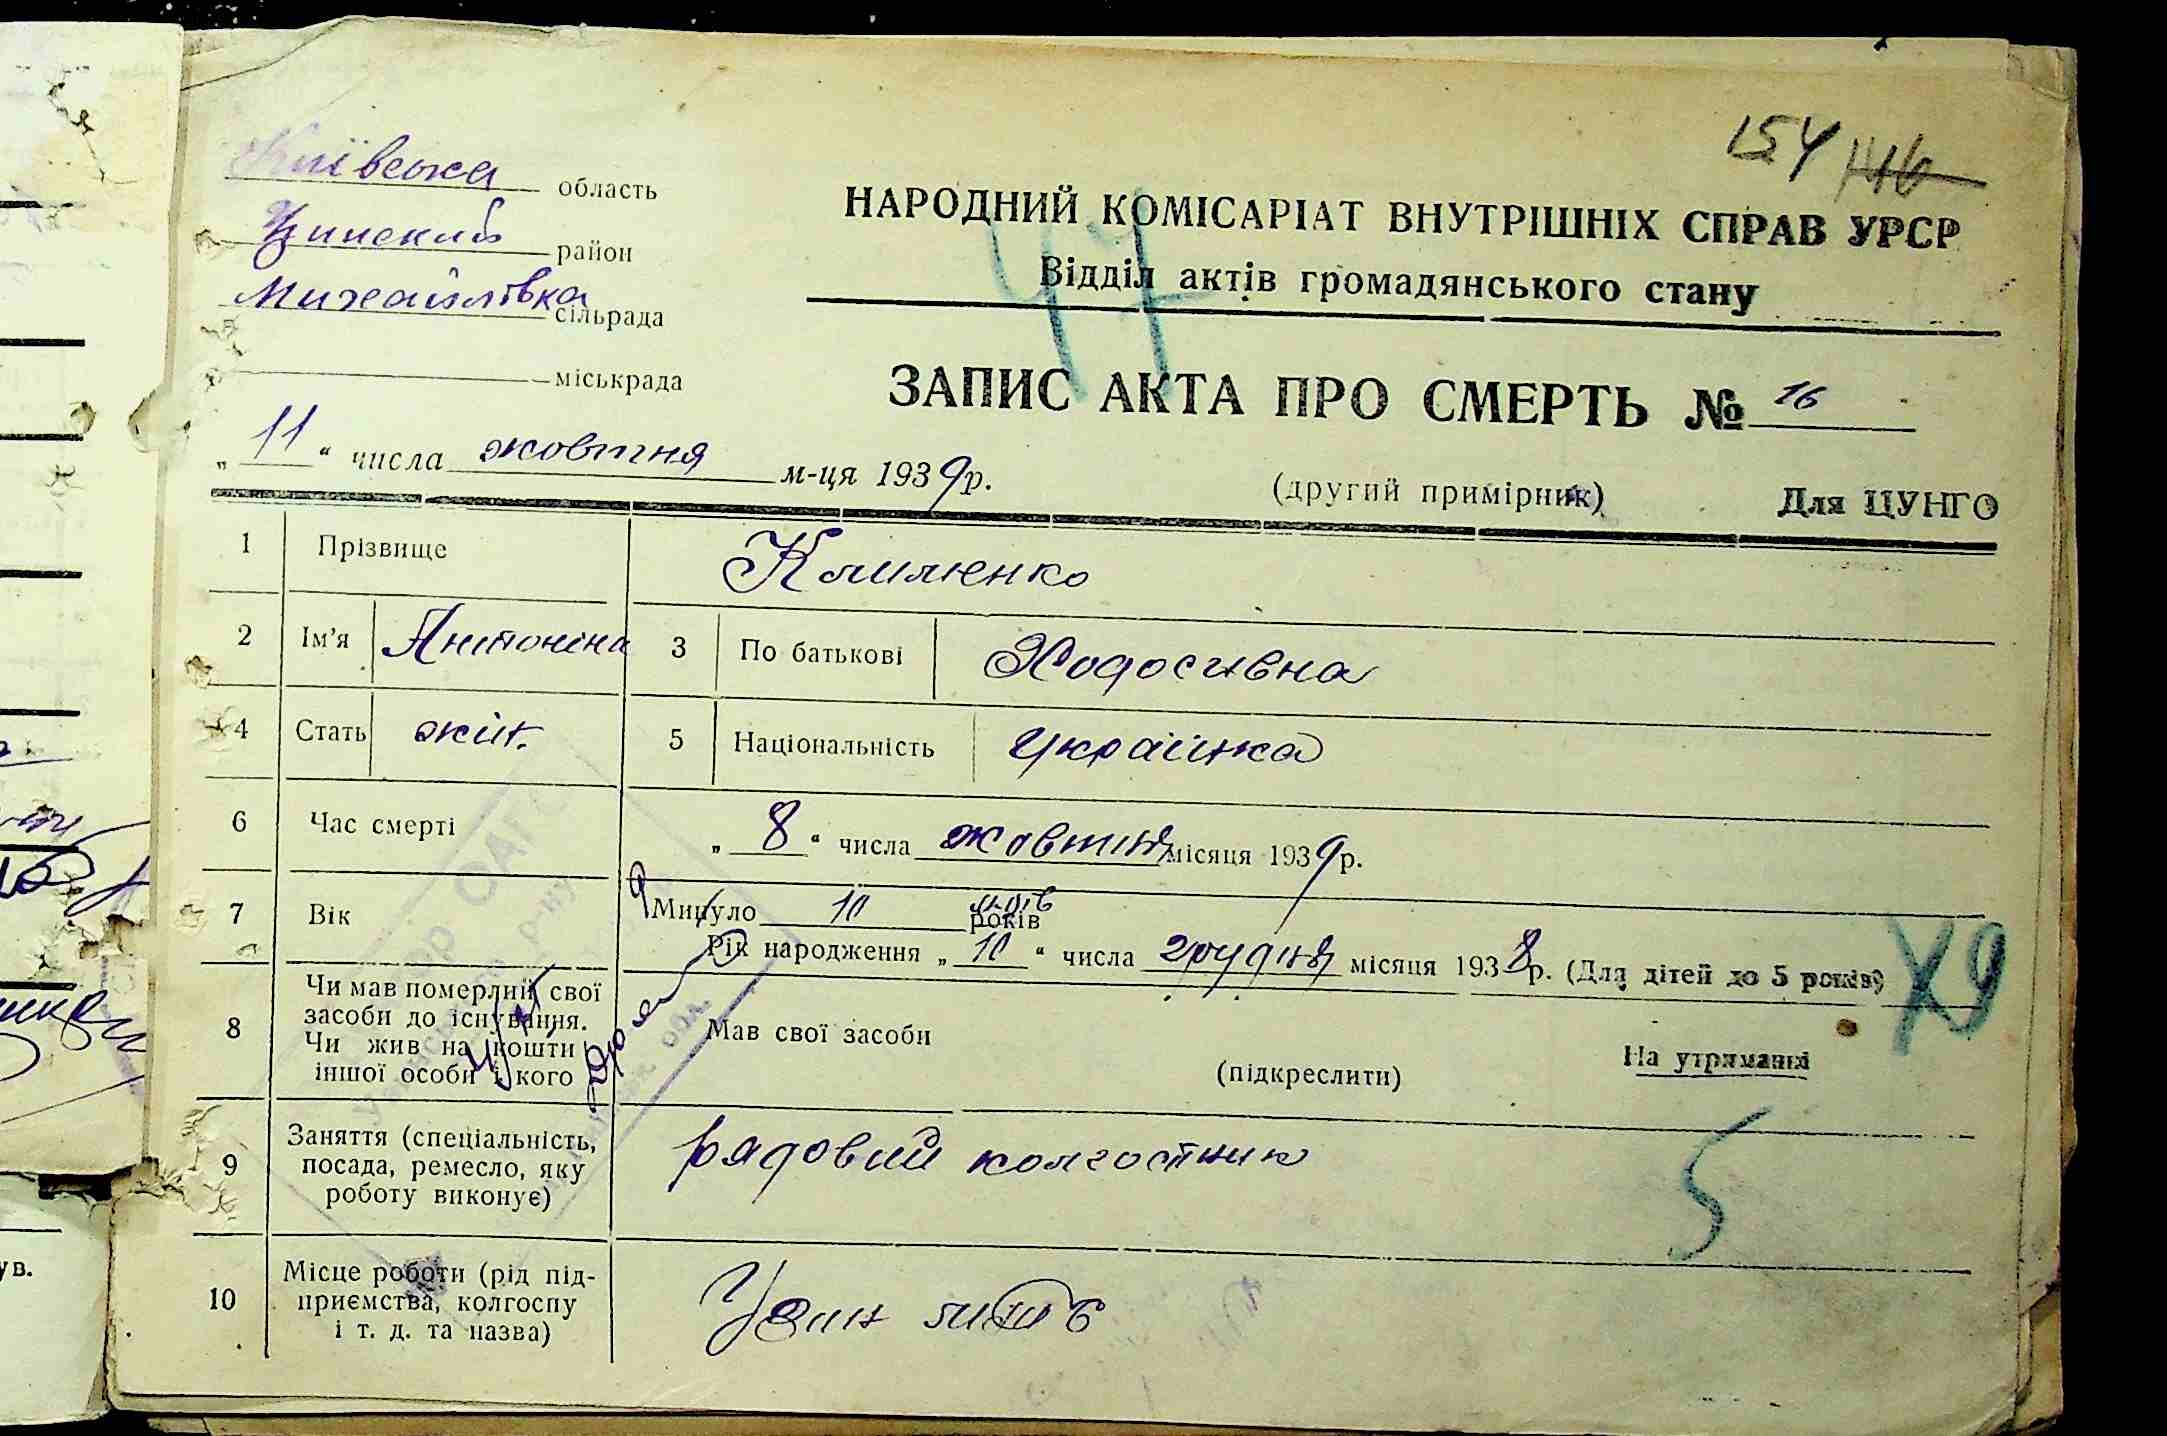 154 116
Київська область
Узинский район
Михайлівка сільрада
міськрада
НАРОДНИЙ КОМІСАРІАТ ВНУТРІШНІХ СПРАВ УРСР
Відділ актів громадянського стану
47
ЗАПИС АКТА ПРО СМЕРТЬ № 16
„ 11 “ числа жовтня м-ця 1939 р.
(другий примірник) Для ЦУНГО
1 Прізвище Клименко
2 Ім’я Антоніна 3 По батькові Ходосивна
4 Стать жін. 5 Національність Українка
6 Час смерті „ 8 “ числа жовтня місяця 1939 р.
7 Вік Минуло 10 м-ців років
Рік народження „ 10 “ числа грудня місяця 1938 р. (Для дітей до 5 років)
8 Чи мав померлий свої засоби до існування. Чи жив на кошти іншої особи і кого
Мав свої засоби (підкреслити) На утриманні
9 Заняття (спеціальність, посада, ремесло, яку роботу виконує) рядовий колгоспник
5
10 Місце роботи (рід підприємства, колгоспу і т. д. та назва)